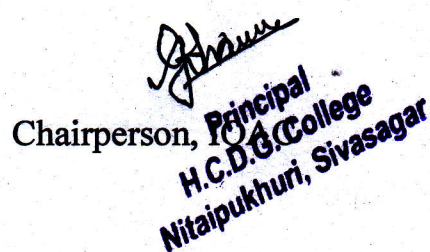 Chairperson, IQAC
Principal
H.C.D.G. College
Nitaipukhuri, Sivasagar